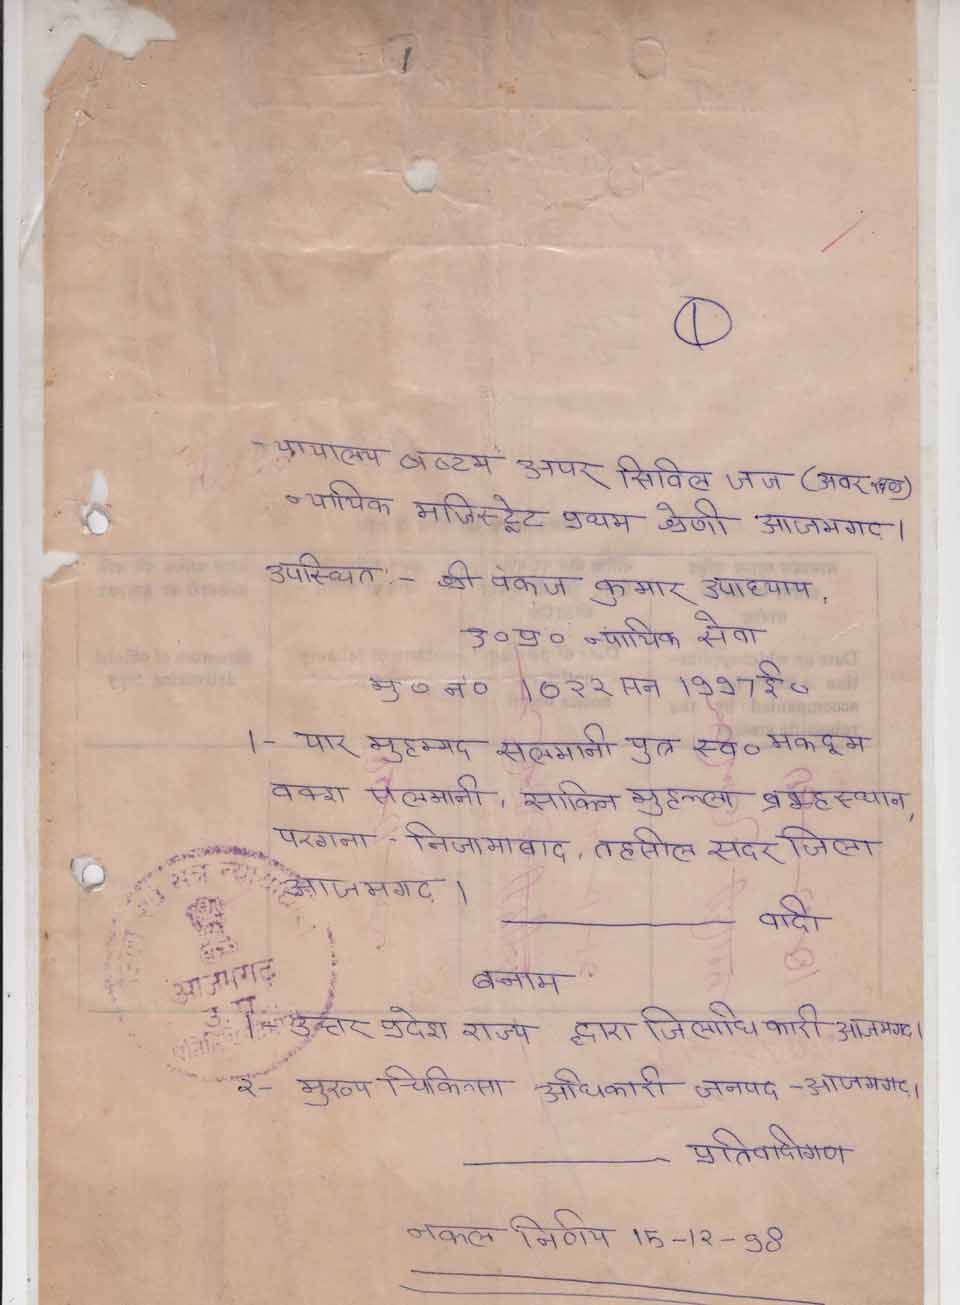 1
①
न्यायालय षष्टम अपर सिविल जज (अवर खण्ड)
न्यायिक मजिस्ट्रेट प्रथम श्रेणी आजमगढ़।
उपस्थित:- श्री पंकज कुमार उपाध्याय,
उ०प्र० न्यायिक सेवा
मु० नं० 1022 सन 1997 ई०
1- यार मुहम्मद सलमानी पुत्र स्व० मकदूम
वक्श सलमानी, साकिन मुहल्ला ब्रम्हस्थान,
परगना - निजामाबाद, तहसील सदर जिला
आजमगढ़।
वादी
बनाम
आजमगढ़
उ. प्र.
1- उत्तर प्रदेश राज्य द्वारा जिलाधिकारी आजमगढ़।
२- मुख्य चिकित्सा अधिकारी जनपद - आजमगढ़।
प्रतिवादीगण
नकल निर्णय 15-12-98